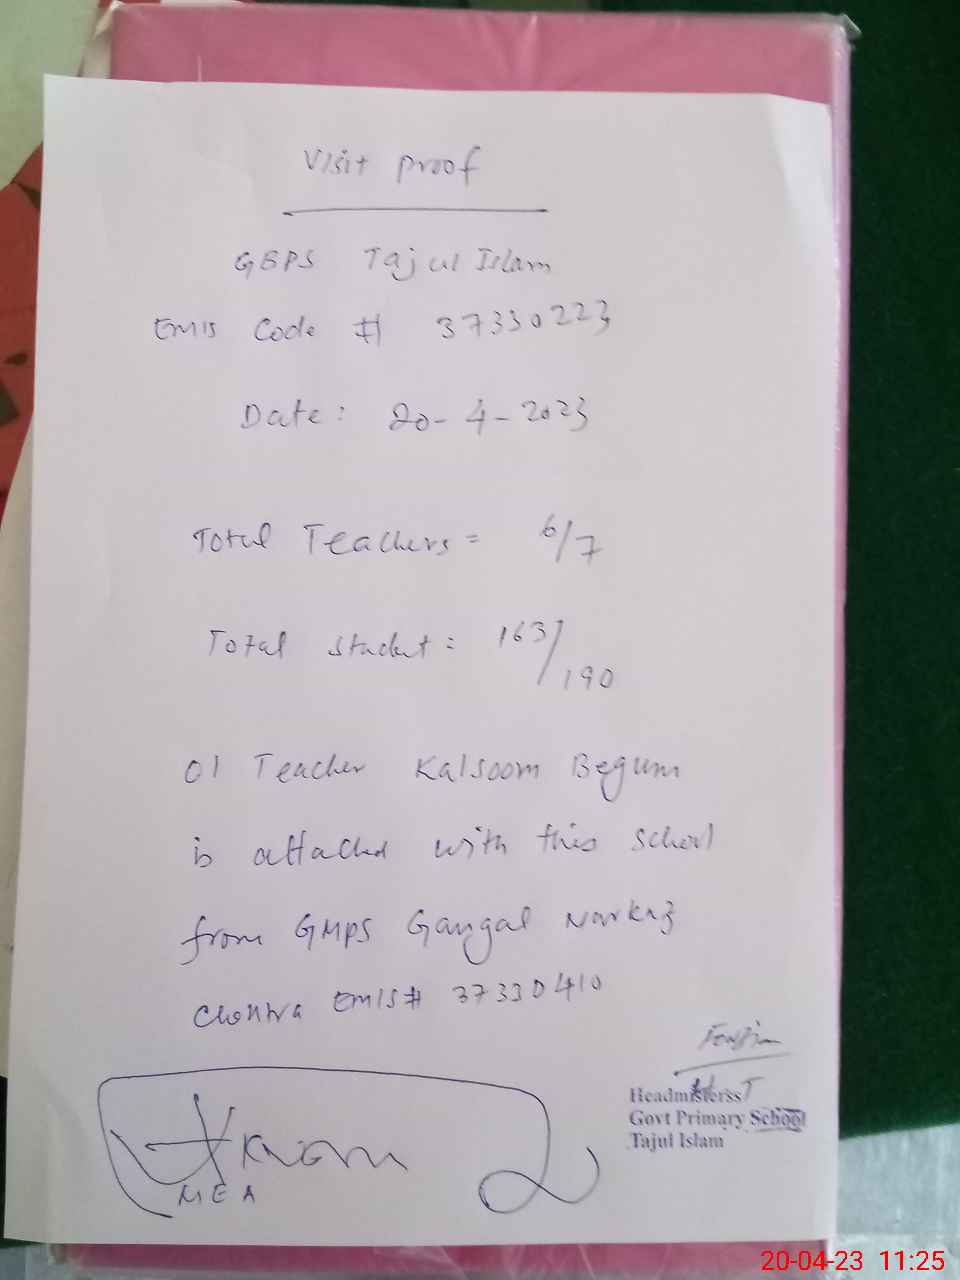 Visit Proof
GBPS Tajul Islam
EMIS Code # 37330223
Date: 20-4-2023
Total Teachers = 6/7
Total Student = 163/190
01 Teacher Kalsoom Begum
is attached with this school
from GMPS Gangal Narkaz
Chontra EMIS# 37330410
Headmisterss
Govt Primary School
Tajul Islam
MEA
20-04-23 11:25